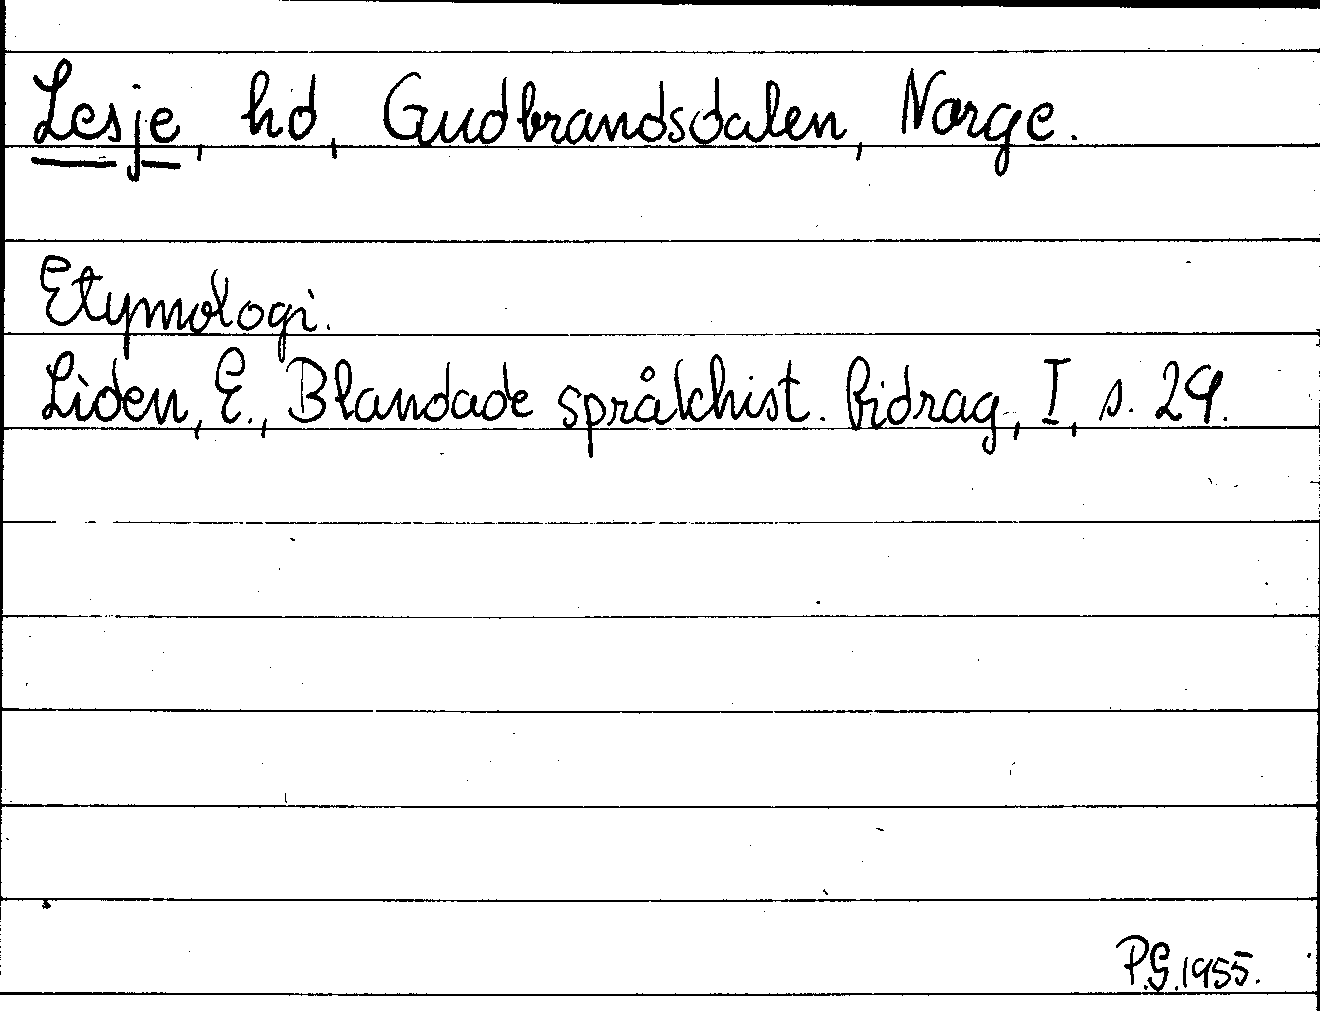 Lesje, hd, Gudbrandsdalen, Norge.
Etymologi.
Liden, E., Blandade språkhist. bidrag, I, s. 29.
P.G. 1955.